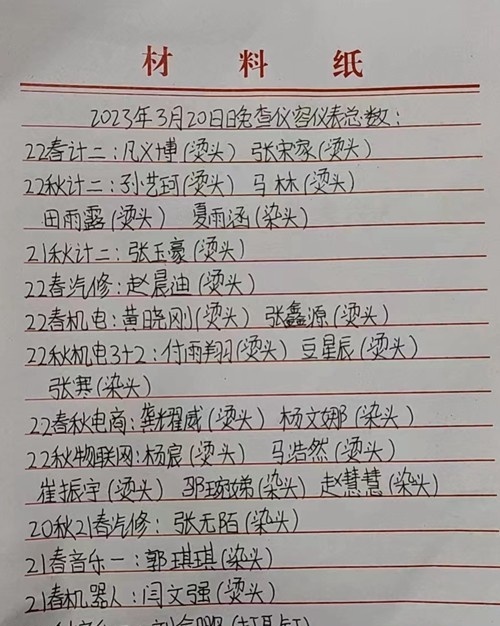 材料纸
2023年3月20日晚查仪容仪表总数:
22春计二:凡义博(烫头) 张宋家(烫头)
22秋计二:孙艺珂(烫头) 马林(烫头)
田雨露(烫头) 夏雨涵(染头)
21秋计二:张玉豪(烫头)
22春汽修:赵晨迪(烫头)
22春机电:黄晓刚(烫头) 张鑫源(烫头)
22秋机电3+2:付雨翔(烫头) 豆星辰(烫头)
张寒(染头)
22春秋电商:龚耀威(烫头) 杨文娜(染头)
22秋物联网:杨宸(烫头) 马浩然(烫头)
崔振宇(烫头) 邹琬娣(染头) 赵慧慧(染头)
20秋21春汽修:张无陌(染头)
21春音乐一:郭琪琪(染头)
21春机器人:闫文强(烫头)